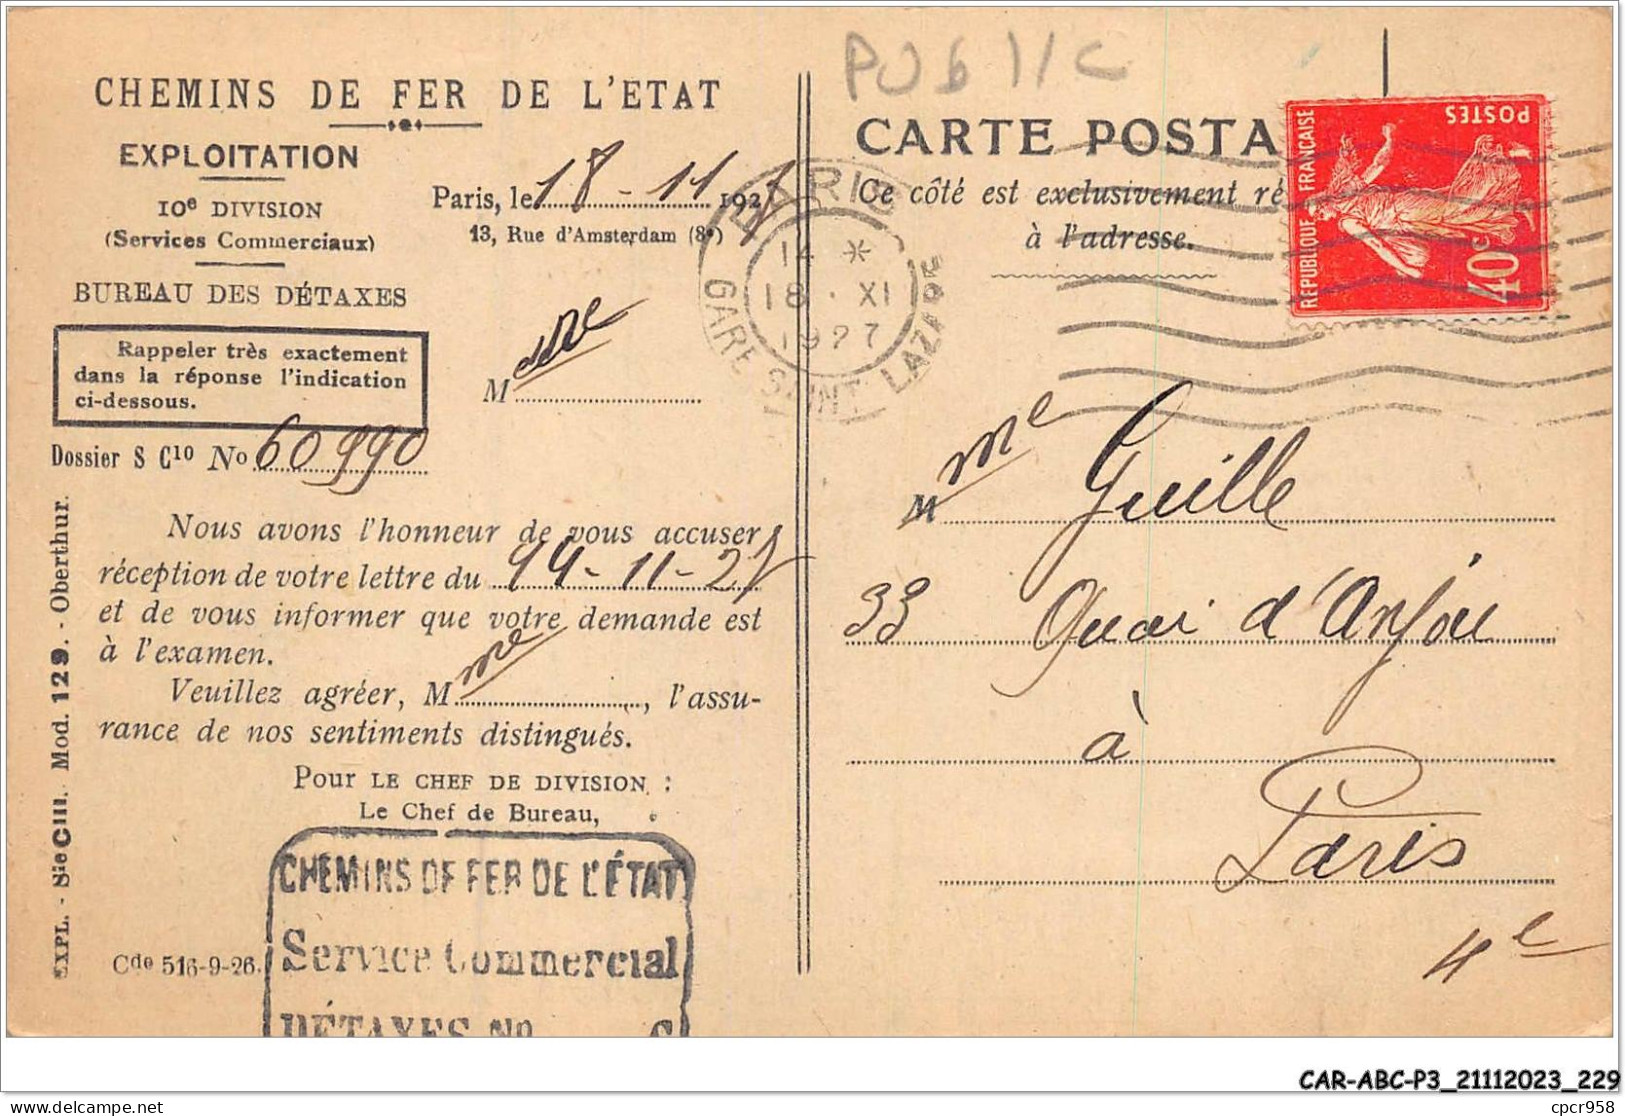 CHEMINS DE FER DE L'ETAT
EXPLOITATION
10e DIVISION
(Services Commerciaux)
BUREAU DES DÉTAXES
Rappeler très exactement
dans la réponse l'indication
ci-dessous.
Dossier S C10 No 60990
Paris, le 18-11 1927
13, Rue d'Amsterdam (8e)
Mme
Nous avons l'honneur de vous accuser
réception de votre lettre du 14-11-27
et de vous informer que votre demande est
à l'examen.
Veuillez agréer, Mme, l'assu-
rance de nos sentiments distingués.
Pour LE CHEF DE DIVISION :
Le Chef de Bureau,
CHEMINS DE FER DE L'ÉTAT
Service Commercial
DÉTAXES No 6
Cde 516-9-26.
EXPL. - Sie CIII. Mod. 129. - Oberthur.
PUB 11C
CARTE POSTA
Ce côté est exclusivement ré
à l'adresse.
PARIS
14 *
18 . XI
1927
GARE SAINT LAZARE
POSTES
REPUBLIQUE FRANÇAISE
40c
Mme Guille
33 Quai d'Anjou
à
Paris
4e
CAR-ABC-P3_21112023_229
cpcr958
delcampe.net